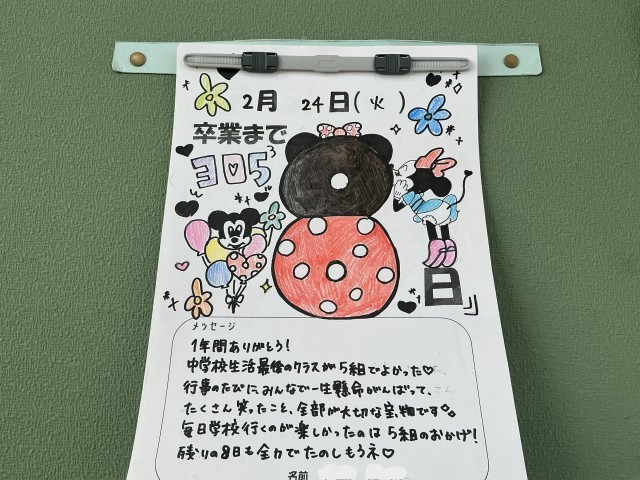 2月 24日(火)
卒業まで
ヨロ5
8
日
メッセージ
1年間ありがとう!
中学校生活最後のクラスが5組でよかった♡
行事のたびにみんなで一生懸命がんばって、
たくさん笑ったこと、全部が大切な宝物です
毎日学校行くのが楽しかったのは5組のおかげ!
残りの8日も全力でたのしもうネ♡
名前